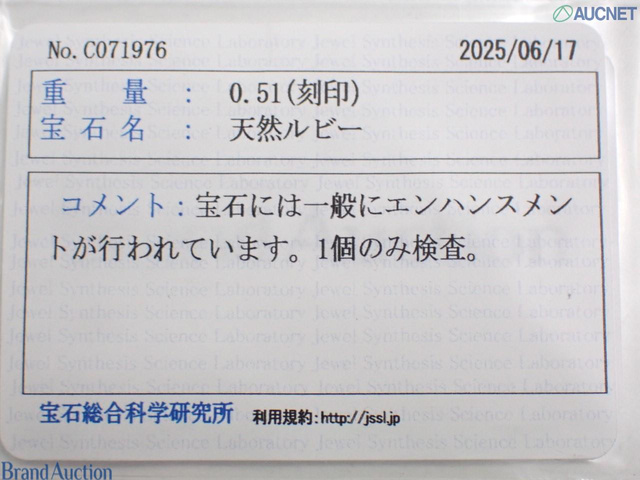 AUCNET
No.C071976 2025/06/17
重量： 0.51(刻印)
宝石名： 天然ルビー
コメント：宝石には一般にエンハンスメン
トが行われています。1個のみ検査。
宝石総合科学研究所 利用規約:http://jssl.jp
Brand Auction
Jewel Synthesis Science Laboratory